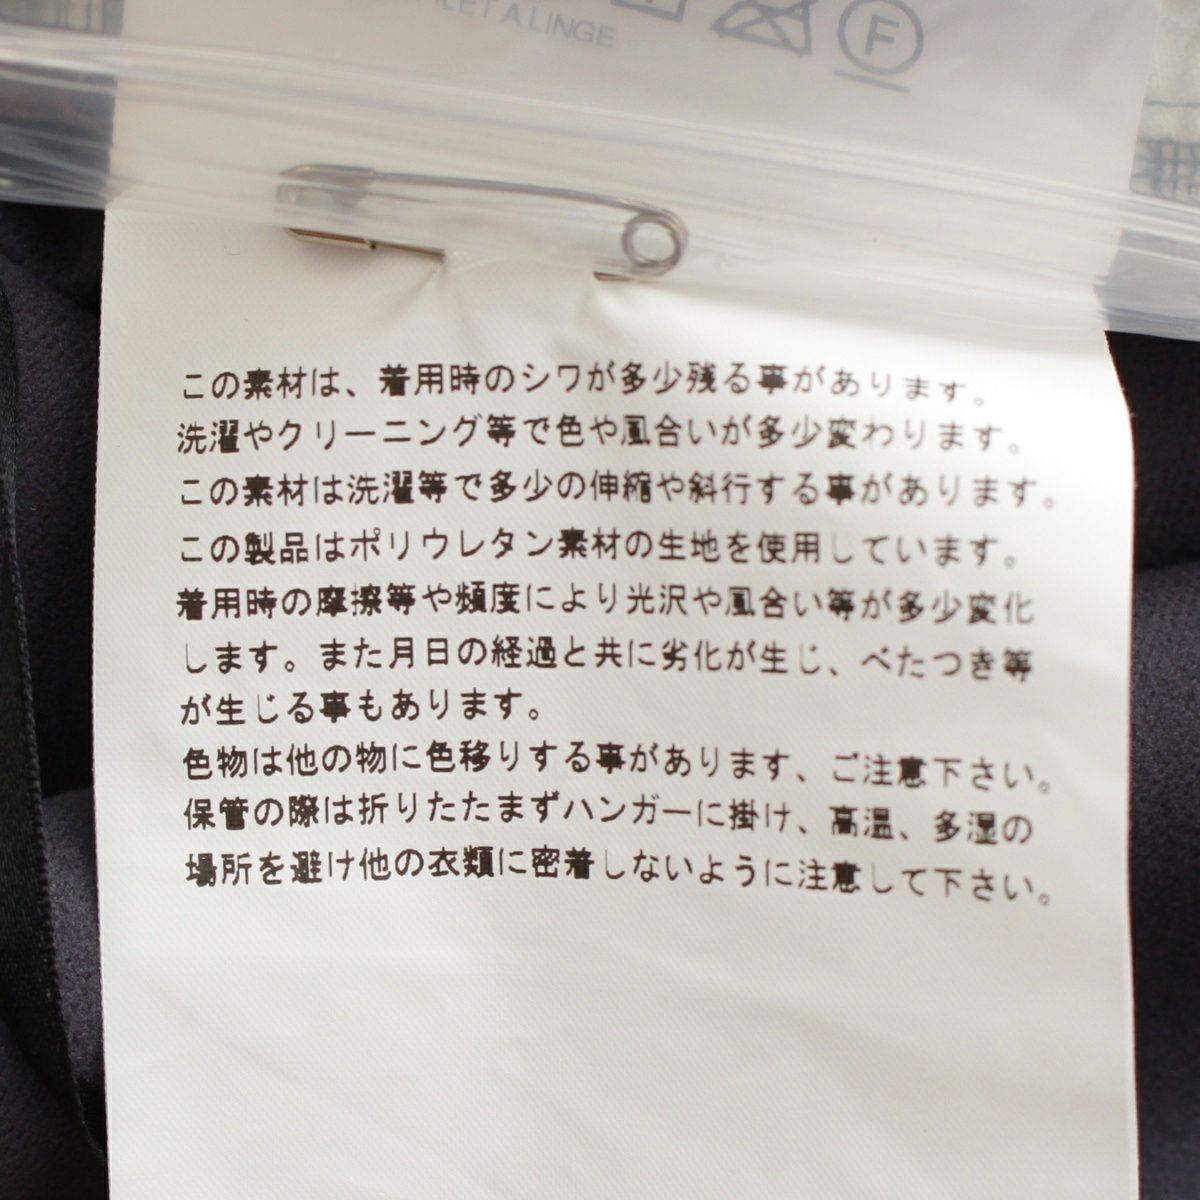 FILET A LINGE
F
この素材は、着用時のシワが多少残る事があります。
洗濯やクリーニング等で色や風合いが多少変わります。
この素材は洗濯等で多少の伸縮や斜行する事があります。
この製品はポリウレタン素材の生地を使用しています。
着用時の摩擦等や頻度により光沢や風合い等が多少変化
します。また月日の経過と共に劣化が生じ、べたつき等
が生じる事もあります。
色物は他の物に色移りする事があります、ご注意下さい。
保管の際は折りたたまずハンガーに掛け、高温、多湿の
場所を避け他の衣類に密着しないように注意して下さい。